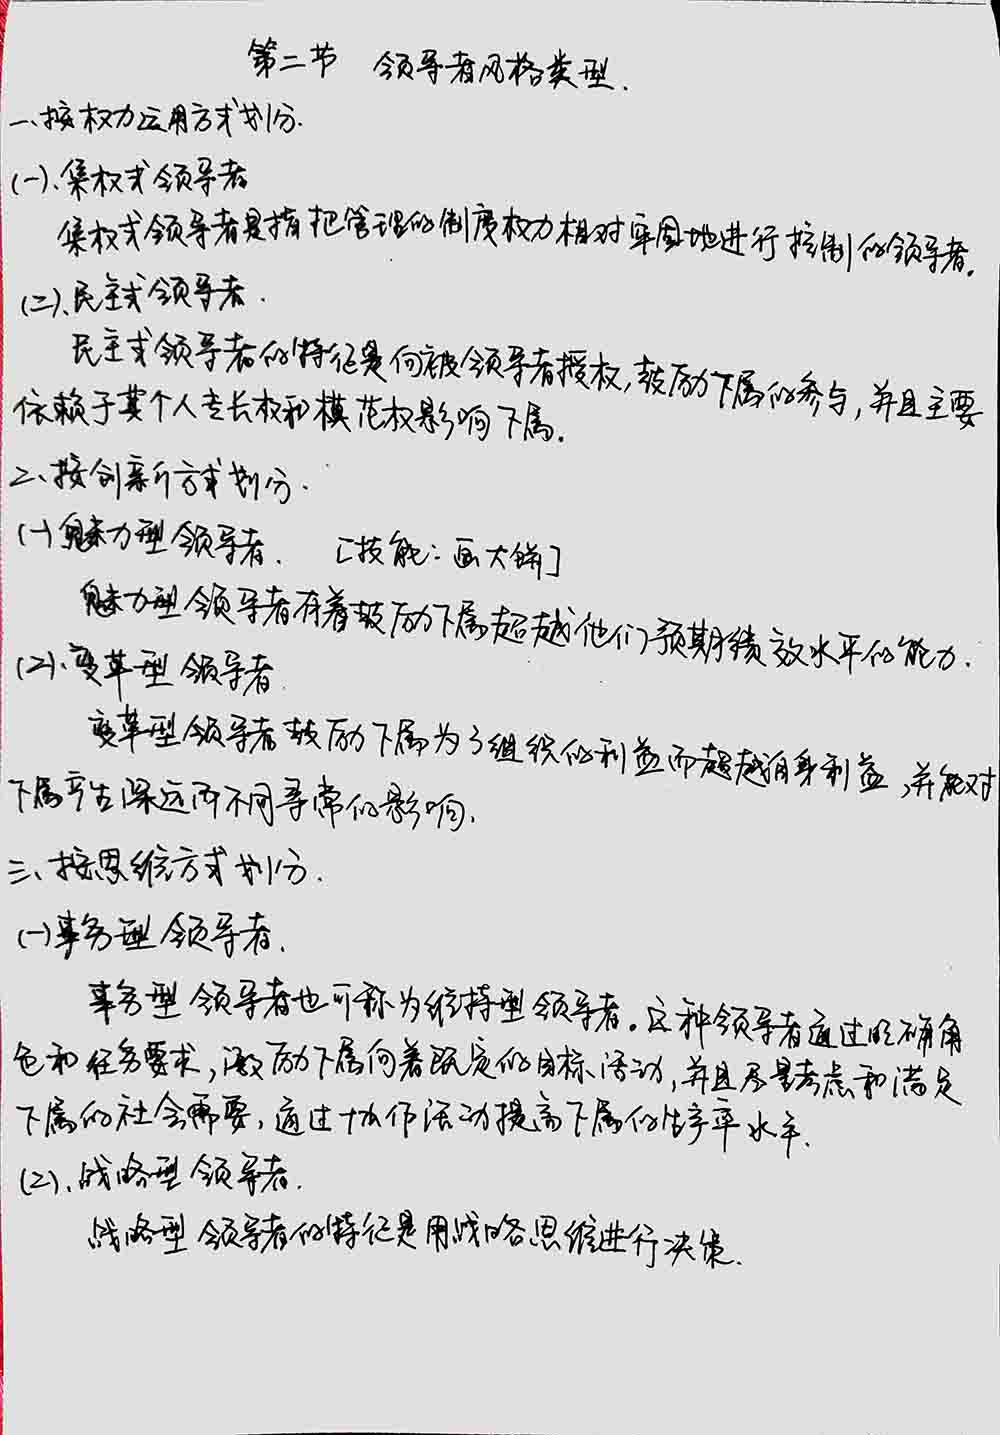 第二节 领导者风格类型.
一、按权力运用方式划分.
(一)、集权式领导者
集权式领导者是指把管理的制度权力相对牢固地进行控制的领导者。
(二)、民主式领导者.
民主式领导者的特征是向被领导者授权,鼓励下属的参与,并且主要
依赖于其个人专长权和模范权影响下属.
二、按创新方式划分.
(一)魅力型领导者. [技能:画大饼]
魅力型领导者有着鼓励下属超越他们预期绩效水平的能力.
(2)、变革型领导者.
变革型领导者鼓励下属为了组织的利益而超越自身利益,并能对
下属产生深远而不同寻常的影响.
三、按思维方式划分.
(一)事务型领导者.
事务型领导者也可称为维持型领导者。这种领导者通过明确角
色和任务要求,激励下属向着既定的目标活动,并且尽量考虑和满足
下属的社会需要,通过协作活动提高下属的生产率水平.
(2)、战略型领导者.
战略型领导者的特征是用战略思维进行决策.